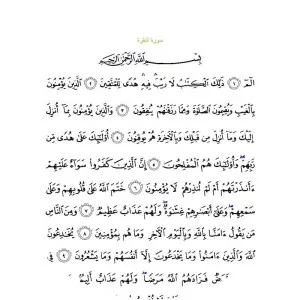 سورة البقرة
بِسْمِ اللَّهِ الرَّحْمَٰنِ الرَّحِيمِ
الٓمٓ ١ ذَٰلِكَ الْكِتَابُ لَا رَيْبَ فِيهِ هُدًى لِلْمُتَّقِينَ ٢ الَّذِينَ يُؤْمِنُونَ
بِالْغَيْبِ وَيُقِيمُونَ الصَّلَاةَ وَمِمَّا رَزَقْنَاهُمْ يُنْفِقُونَ ٣ وَالَّذِينَ يُؤْمِنُونَ بِمَا أُنْزِلَ
إِلَيْكَ وَمَا أُنْزِلَ مِنْ قَبْلِكَ وَبِالْآخِرَةِ هُمْ يُوقِنُونَ ٤ أُولَٰئِكَ عَلَىٰ هُدًى مِنْ
رَبِّهِمْ وَأُولَٰئِكَ هُمُ الْمُفْلِحُونَ ٥ إِنَّ الَّذِينَ كَفَرُوا سَوَاءٌ عَلَيْهِمْ
ءَأَنْذَرْتَهُمْ أَمْ لَمْ تُنْذِرْهُمْ لَا يُؤْمِنُونَ ٦ خَتَمَ اللَّهُ عَلَىٰ قُلُوبِهِمْ وَعَلَىٰ
سَمْعِهِمْ وَعَلَىٰ أَبْصَارِهِمْ غِشَاوَةٌ وَلَهُمْ عَذَابٌ عَظِيمٌ ٧ وَمِنَ النَّاسِ
مَنْ يَقُولُ ءَامَنَّا بِاللَّهِ وَبِالْيَوْمِ الْآخِرِ وَمَا هُمْ بِمُؤْمِنِينَ ٨ يُخَادِعُونَ
اللَّهَ وَالَّذِينَ ءَامَنُوا وَمَا يَخْدَعُونَ إِلَّا أَنْفُسَهُمْ وَمَا يَشْعُرُونَ ٩
فَزَادَهُمُ اللَّهُ مَرَضًا وَلَهُمْ عَذَابٌ أَلِيمٌ